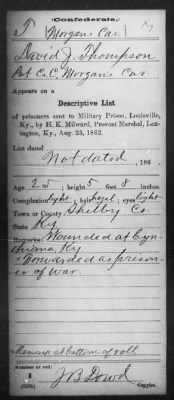 Confederate.
T Morgan's Cav.
David J. Thompson
Pvt Co. C, Morgan's Cav.
Appears on a
Descriptive List
of prisoners sent to Military Prison, Louisville,
Ky., by H. K. Milward, Provost Marshal, Lex-
ington, Ky., Aug. 25, 1862.
List dated
Not dated, 186 .
Age 25; height 5 feet 8 inches.
Complexion light; hair hazel; eyes light
Town or County Shelby Co.
State Ky.
Remarks: Wounded at Cyn-
thiana, Ky.
Forwarded as prison-
er of war.
Remark at bottom of roll
Number of roll:
J B Dowd
Copyist.